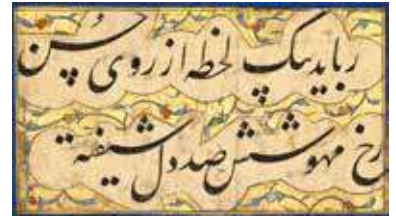 رباید یک لحظه از روی حسن
رخ مهوشش صد دل شیفته